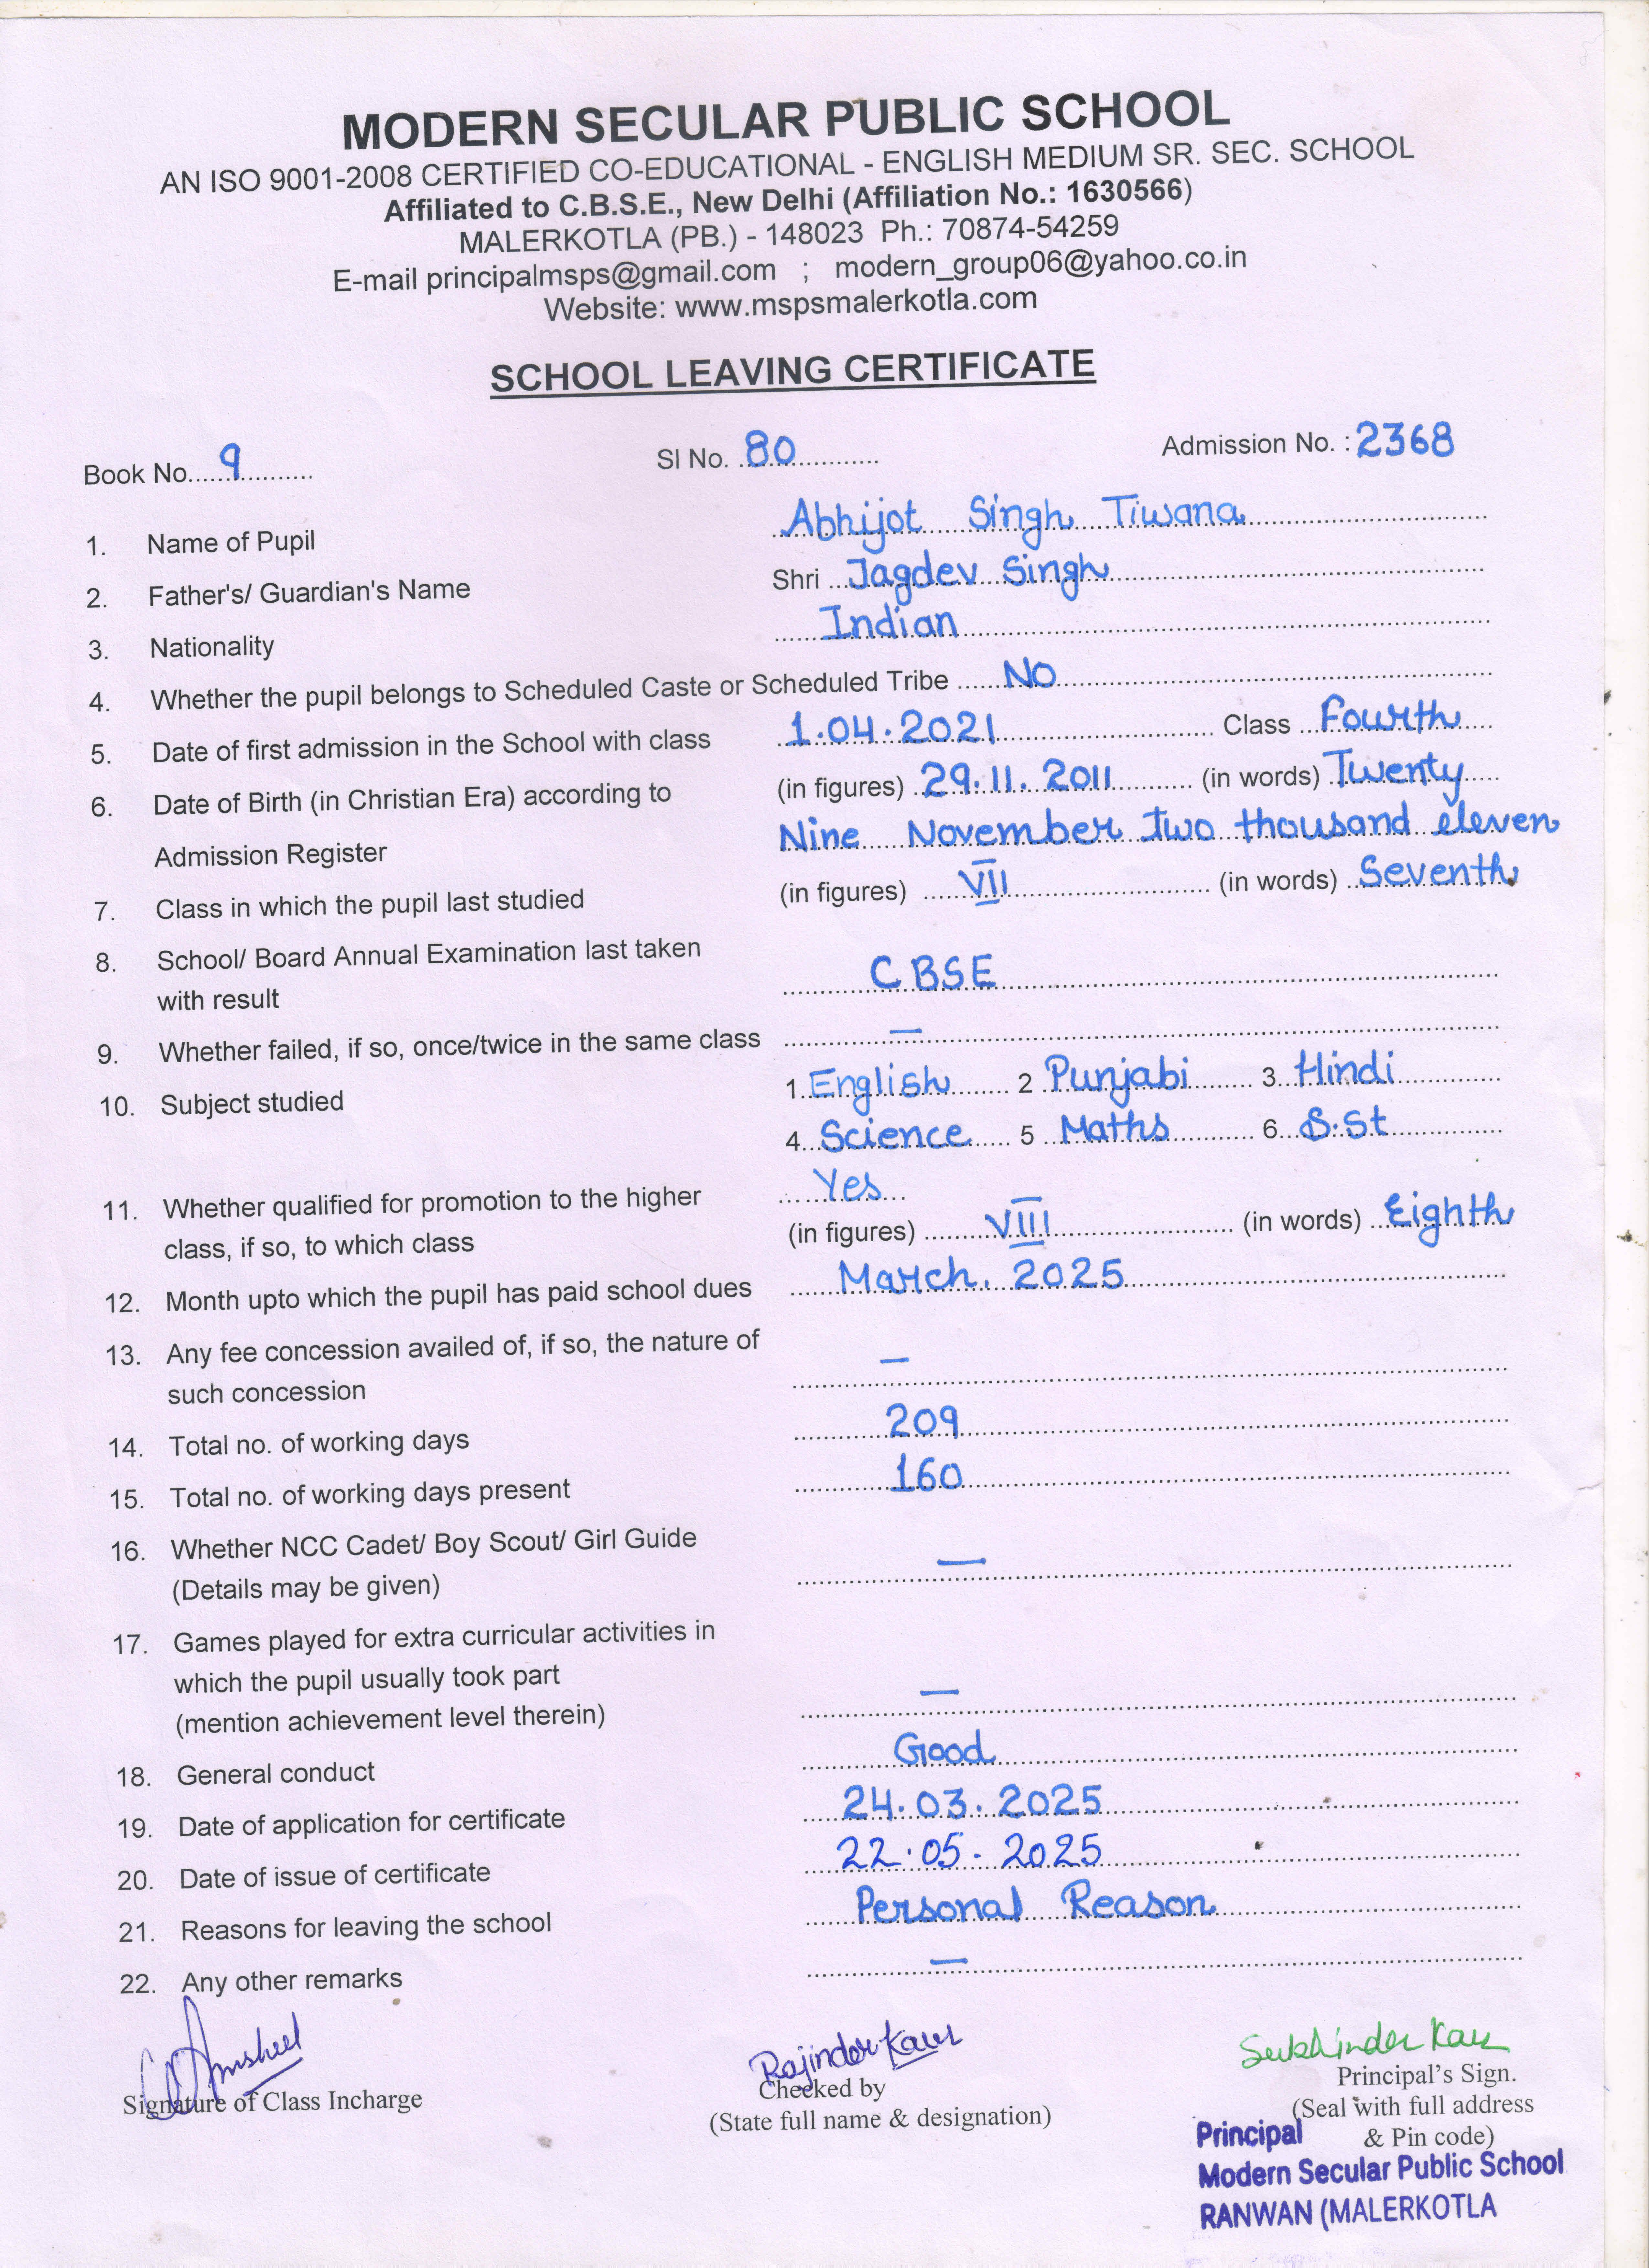 MODERN SECULAR PUBLIC SCHOOL
AN ISO 9001-2008 CERTIFIED CO-EDUCATIONAL - ENGLISH MEDIUM SR. SEC. SCHOOL
Affiliated to C.B.S.E., New Delhi (Affiliation No.: 1630566)
MALERKOTLA (PB.) - 148023 Ph.: 70874-54259
E-mail principalmsps@gmail.com ; modern_group06@yahoo.co.in
Website: www.mspsmalerkotla.com
SCHOOL LEAVING CERTIFICATE
Book No. 9 Sl No. 80 Admission No. : 2368
1. Name of Pupil Abhijot Singh Tiwana
2. Father's/ Guardian's Name Shri Jagdev Singh
3. Nationality Indian
4. Whether the pupil belongs to Scheduled Caste or Scheduled Tribe No
5. Date of first admission in the School with class 1.04.2021 Class Fourth
6. Date of Birth (in Christian Era) according to (in figures) 29.11.2011 (in words) Twenty
Admission Register Nine November two thousand eleven
7. Class in which the pupil last studied (in figures) VII (in words) Seventh
8. School/ Board Annual Examination last taken
with result CBSE
9. Whether failed, if so, once/twice in the same class —
10. Subject studied 1. English 2 Punjabi 3. Hindi
4. Science 5 Maths 6. S.St
Yes
11. Whether qualified for promotion to the higher (in figures) VIII (in words) Eighth
class, if so, to which class
12. Month upto which the pupil has paid school dues March. 2025
13. Any fee concession availed of, if so, the nature of
such concession —
14. Total no. of working days 209
15. Total no. of working days present 160
16. Whether NCC Cadet/ Boy Scout/ Girl Guide
(Details may be given) —
17. Games played for extra curricular activities in
which the pupil usually took part
(mention achievement level therein) —
18. General conduct Good
19. Date of application for certificate 24.03.2025
20. Date of issue of certificate 22.05.2025
21. Reasons for leaving the school Personal Reason
22. Any other remarks —
Rajinder Kaur Sukhinder Kaur
Signature of Class Incharge Checked by Principal's Sign.
(State full name & designation) (Seal with full address
& Pin code)
Principal
Modern Secular Public School
RANWAN (MALERKOTLA